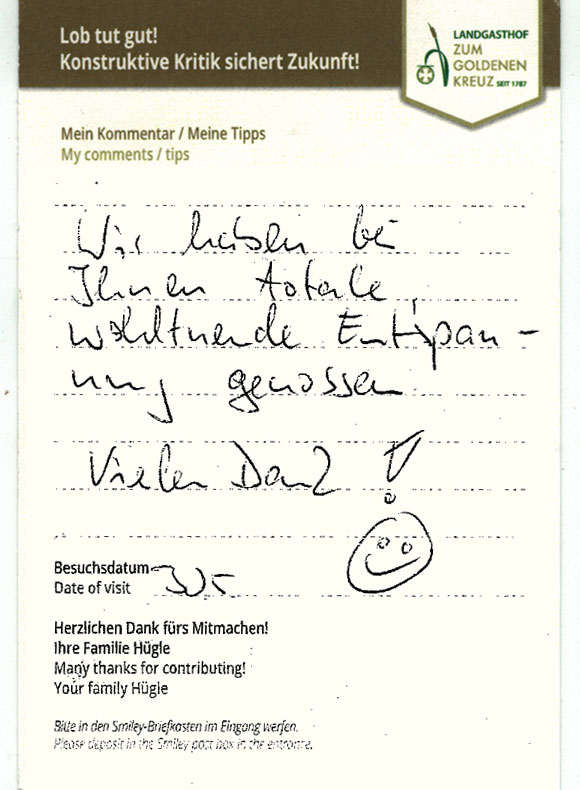 Lob tut gut!
Konstruktive Kritik sichert Zukunft!
LANDGASTHOF
ZUM
GOLDENEN
KREUZ SEIT 1787
Mein Kommentar / Meine Tipps
My comments / tips
Wir haben bei
Ihnen totale,
wohltuende Entspan-
nung genossen
Vielen Dank !
Besuchsdatum
Date of visit
Herzlichen Dank fürs Mitmachen!
Ihre Familie Hügle
Many thanks for contributing!
Your family Hügle
Bitte in den Smiley-Briefkasten im Eingang werfen.
Please deposit in the Smiley post box in the entrance.